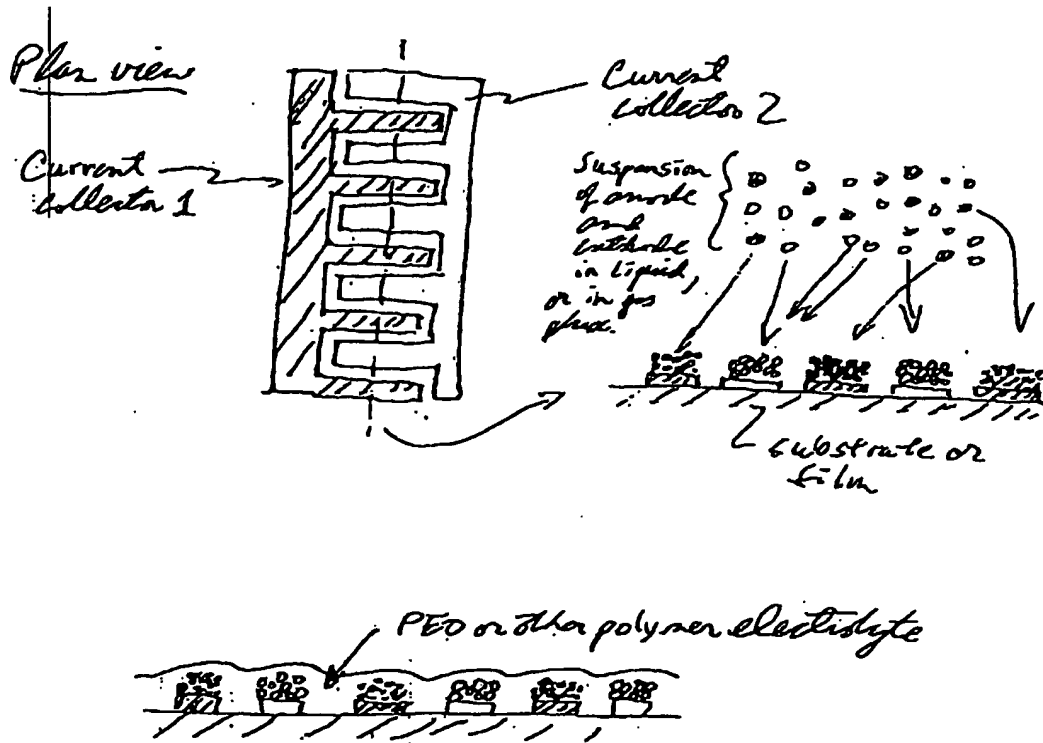 Plan view
Current
collector 1
Current
collector 2
Suspension
of anode
and
cathode
in liquid,
or in gas
phase.
substrate or
film
PEO or other polymer electrolyte